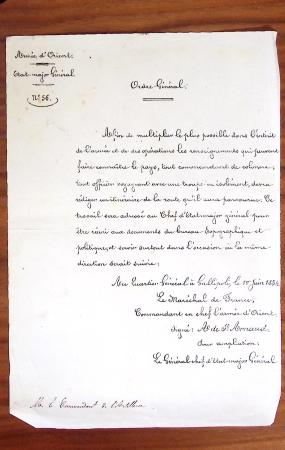 Armée d'Orient.
Etat-major Général
N° 56.
Ordre Général.
Afin de multiplier le plus possible dans l'intérêt
de l'armée et des opérations les renseignements qui peuvent
faire connaître le pays, tout commandant de colonne,
tout officier voyageant avec une troupe ou isolément, devra
rédiger un itinéraire de la route qu'il aura parcourue. Ce
travail sera adressé au Chef d'Etat-major général pour
être réuni aux documents du bureau topographique et
politique, et servir surtout dans l'occasion où la même
direction serait suivie.
Au Quartier Général à Gallipoli, le juin 1854
Le Maréchal de France,
Commandant en chef l'armée d'Orient.
Signé: de St Arnaud.
Pour ampliation:
Le Général chef d'Etat-major Général
Mr. le Commandant de l'Artillerie